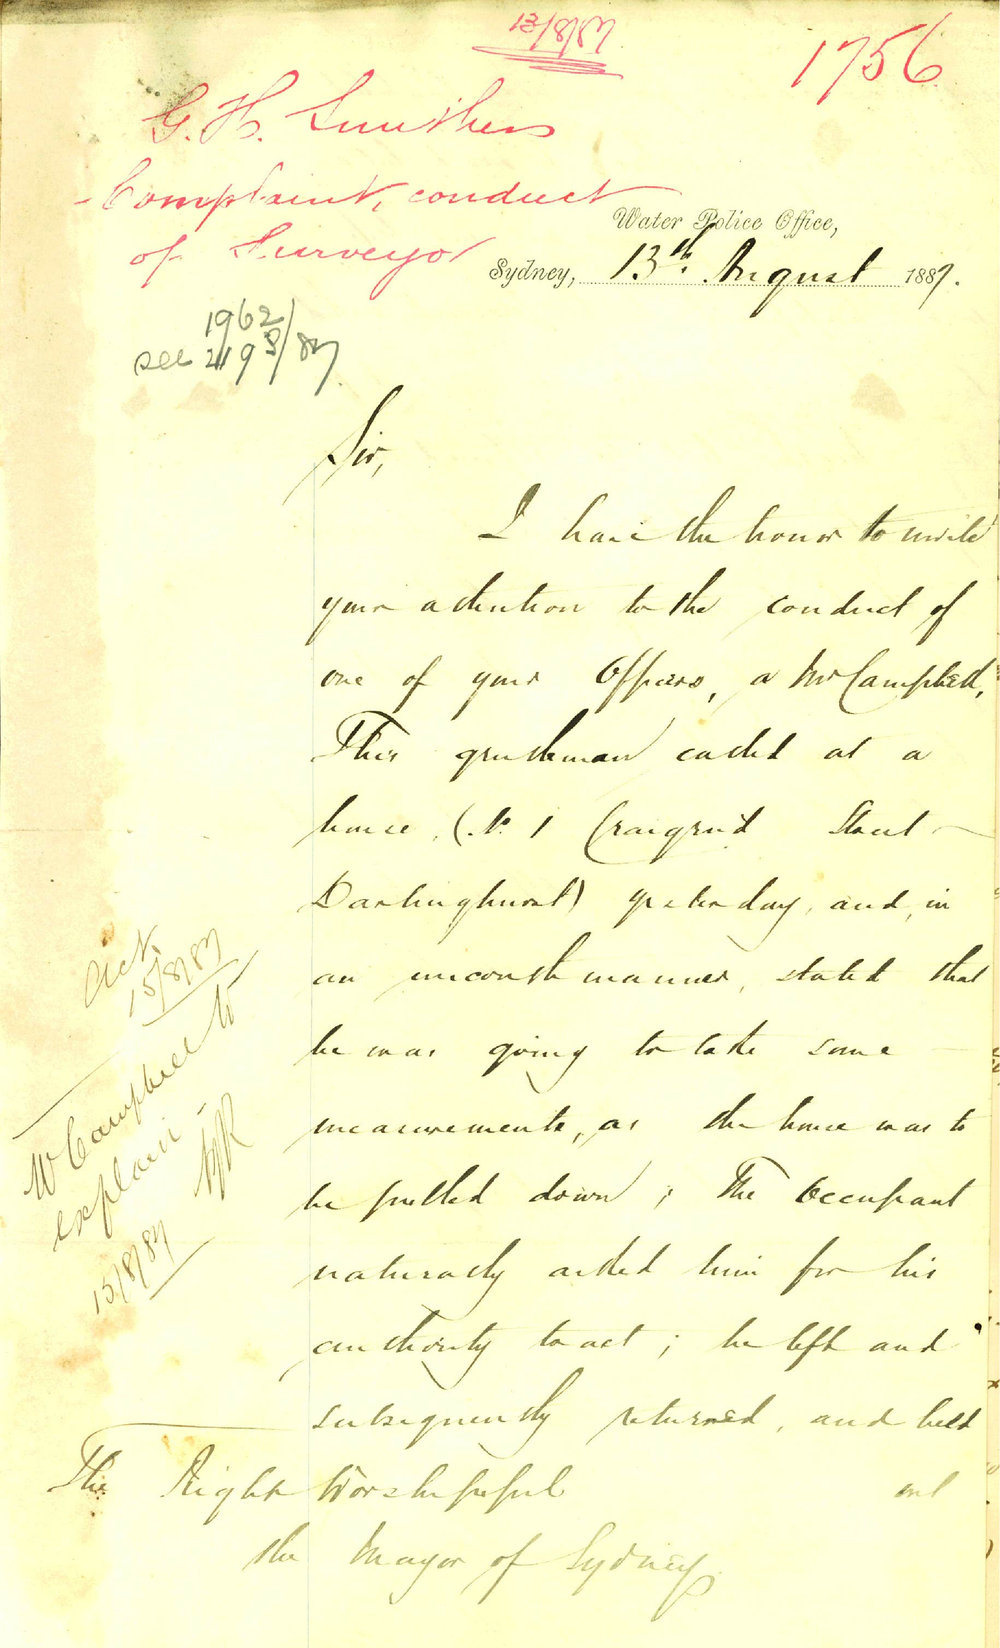 13/8/87
1756
G. H. Smithers
Complaint, conduct
of Surveyor
Water Police Office,
Sydney, 13th. August 1887.
1962/
see 2198/87
Sir,
I have the honor to invite
your attention to the conduct of
one of your Officers, a Mr Campbell,
This gentleman called at a
house, (No. 1 Craigend Street
Darlinghurst) yesterday, and, in
an uncouth manner, stated that
he was going to take some
measurements, as the house was to
be pulled down; The Occupant
naturally asked him for his
authority to act; he left and
subsequently returned, and held
out
The Right Worshipful
the Mayor of Sydney
Act
15/8/87
Mr Campbell to
explain -
15/8/87